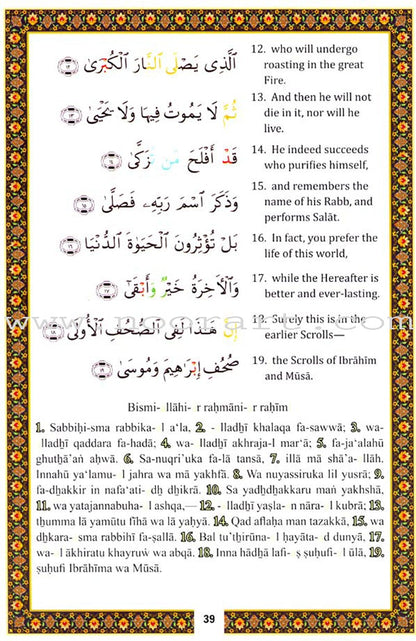 ٱلَّذِى يَصْلَى ٱلنَّارَ ٱلْكُبْرَىٰ ﴿١٢﴾
12. who will undergo
roasting in the great
Fire.
ثُمَّ لَا يَمُوتُ فِيهَا وَلَا يَحْيَىٰ ﴿١٣﴾
13. And then he will not
die in it, nor will he
live.
قَدْ أَفْلَحَ مَن تَزَكَّىٰ ﴿١٤﴾
14. He indeed succeeds
who purifies himself,
وَذَكَرَ ٱسْمَ رَبِّهِۦ فَصَلَّىٰ ﴿١٥﴾
15. and remembers the
name of his Rabb, and
performs Salāt.
بَلْ تُؤْثِرُونَ ٱلْحَيَوٰةَ ٱلدُّنْيَا ﴿١٦﴾
16. In fact, you prefer the
life of this world,
وَٱلْـَٔاخِرَةُ خَيْرٌ وَأَبْقَىٰٓ ﴿١٧﴾
17. while the Hereafter is
better and ever-lasting.
إِنَّ هَـٰذَا لَفِى ٱلصُّحُفِ ٱلْأُولَىٰ ﴿١٨﴾
18. Surely this is in the
earlier Scrolls—
صُحُفِ إِبْرَٰهِيمَ وَمُوسَىٰ ﴿١٩﴾
19. the Scrolls of Ibrāhīm
and Mūsā.
www.noorart.com
Bismi- llāhi- r raḥmāni- r raḥīm
1. Sabbiḥi-sma rabbika- l a‘la, 2. - lladhī khalaqa fa-sawwā; 3. wa-
lladhī qaddara fa-hadā; 4. wa- lladhī akhraja-l mar‘ā; 5. fa-ja‘alahū
ghuthā’aṅ aḥwā. 6. Sa-nuqri’uka fa-lā tansā, 7. illā mā shā’a- llāh.
Innahū ya‘lamu- l jahra wa mā yakhfā. 8. Wa nuyassiruka lil yusrā; 9.
fa-dhakkir in nafa‘ati- dh dhikrā. 10. Sa yadhdhakkaru maṅ yakhshā,
11. wa yatajannabuha- l ashqa,— 12. - lladhī yaṣla- n nāra- l kubrā; 13.
thumma lā yamūtu fīhā wa lā yaḥyā. 14. Qad aflaḥa man tazakkā, 15. wa
dhkara- sma rabbihī fa-ṣallā. 16. Bal tu’thirūna- l ḥayāta- d dunyā, 17.
wa- l ākhiratu khayruw wa abqā. 18. Inna hādhā lafi- ṣ ṣuḥufi- l ūlā, 19.
ṣuḥufi Ibrāhīma wa Mūsā.
39